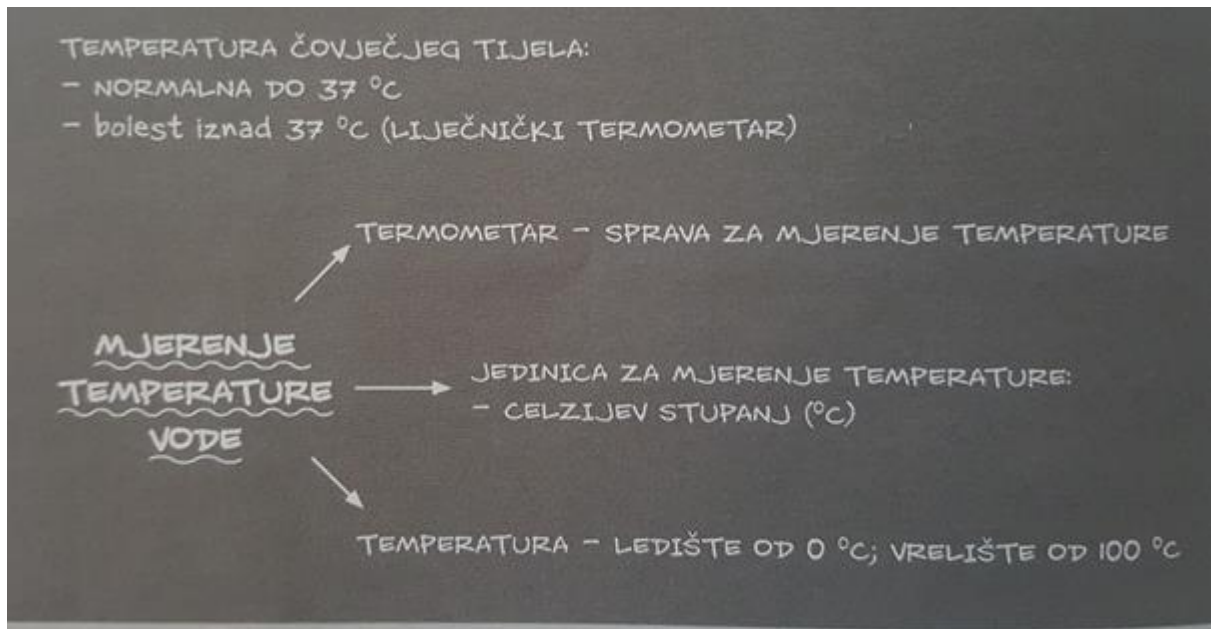 TEMPERATURA ČOVJEČJEG TIJELA:
- NORMALNA DO 37 °C
- bolest iznad 37 °C (LIJEČNIČKI TERMOMETAR)
TERMOMETAR - SPRAVA ZA MJERENJE TEMPERATURE
MJERENJE
TEMPERATURE
VODE
JEDINICA ZA MJERENJE TEMPERATURE:
- CELZIJEV STUPANJ (°C)
TEMPERATURA - LEDIŠTE OD 0 °C; VRELIŠTE OD 100 °C